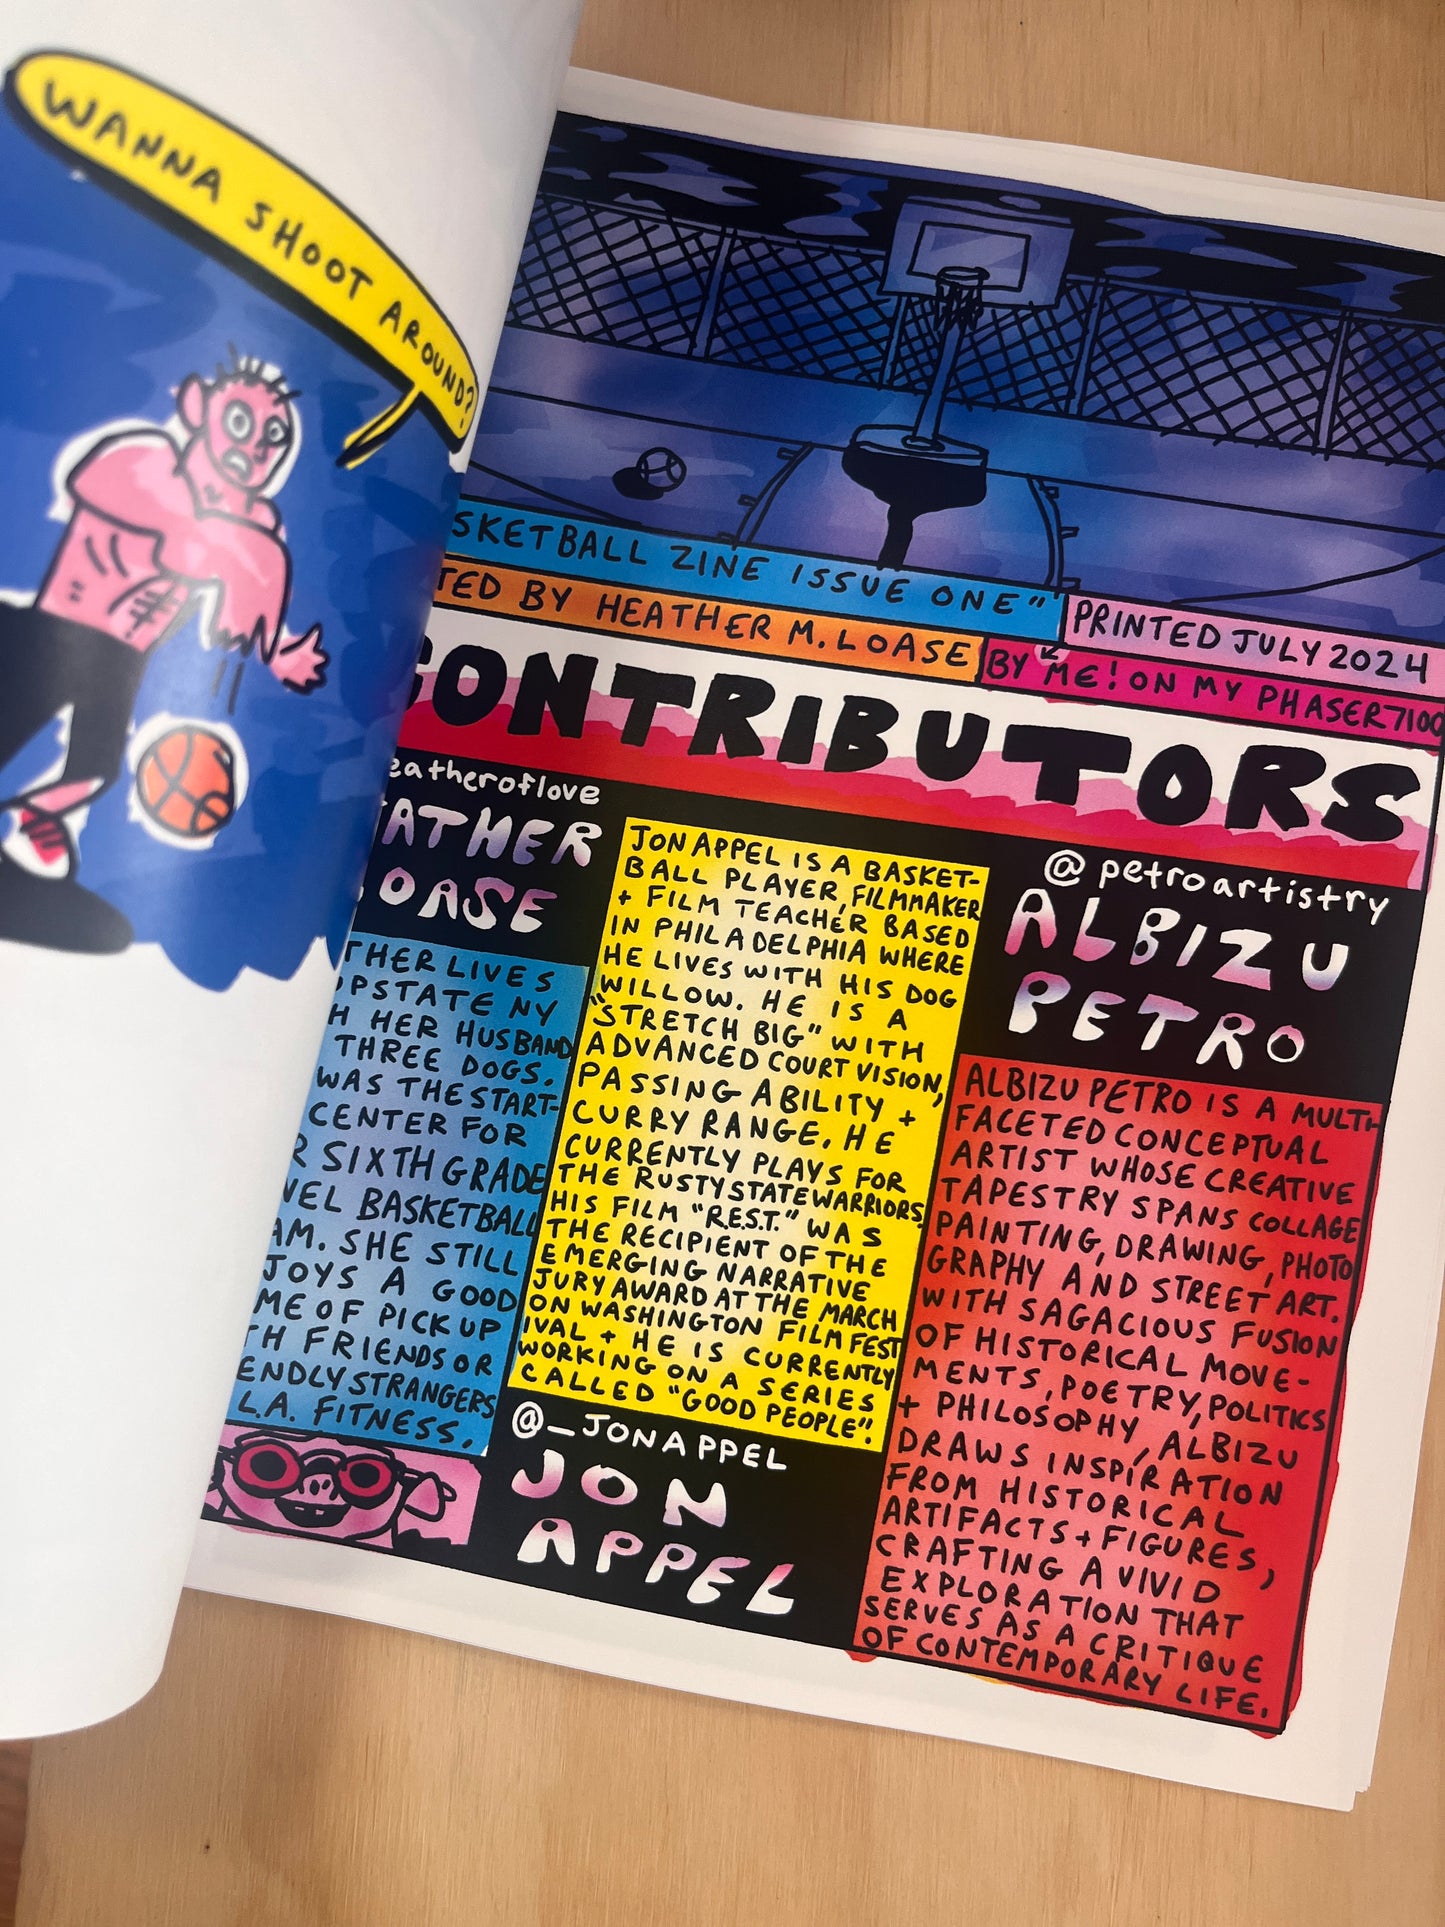 WANNA SHOOT AROUND?
BASKETBALL ZINE ISSUE ONE"
BY HEATHER M. LOASE
PRINTED JULY 2024
BY ME! ON MY PHASER 7100
CONTRIBUTORS
eatheroflove
HEATHER
LOASE
LIVES
UPSTATE NY
HER HUSBAND
THREE DOGS.
WAS THE START-
CENTER FOR
SIXTH GRADE
BASKETBALL
SHE STILL
A GOOD
OF PICK UP
FRIENDS OR
STRANGERS
L.A. FITNESS.
JON APPEL IS A BASKET-
BALL PLAYER, FILMMAKER
+ FILM TEACHER BASED
IN PHILADELPHIA WHERE
HE LIVES WITH HIS DOG
WILLOW. HE IS A
"STRETCH BIG" WITH
ADVANCED COURT VISION,
PASSING ABILITY +
CURRY RANGE. HE
CURRENTLY PLAYS FOR
THE RUSTY STATE WARRIORS.
HIS FILM "R.E.S.T." WAS
THE RECIPIENT OF THE
EMERGING NARRATIVE
JURY AWARD AT THE MARCH
ON WASHINGTON FILM FEST
IVAL + HE IS CURRENTLY
WORKING ON A SERIES
CALLED "GOOD PEOPLE".
@_JONAPPEL
JON
APPEL
@petroartistry
ALBIZU
PETRO
ALBIZU PETRO IS A MULTI-
FACETED CONCEPTUAL
ARTIST WHOSE CREATIVE
TAPESTRY SPANS COLLAGE
PAINTING, DRAWING, PHOTO
GRAPHY AND STREET ART.
WITH SAGACIOUS FUSION
OF HISTORICAL MOVE-
MENTS, POETRY, POLITICS
+ PHILOSOPHY, ALBIZU
DRAWS INSPIRATION
FROM HISTORICAL
ARTIFACTS + FIGURES,
CRAFTING A VIVID
EXPLORATION THAT
SERVES AS A CRITIQUE
OF CONTEMPORARY LIFE.